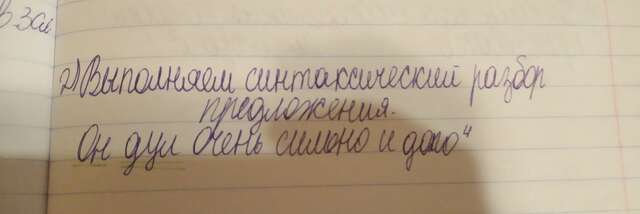 в зал
2) Выполняем синтаксический разбор
предложения.
Он дул очень сильно и долго⁴